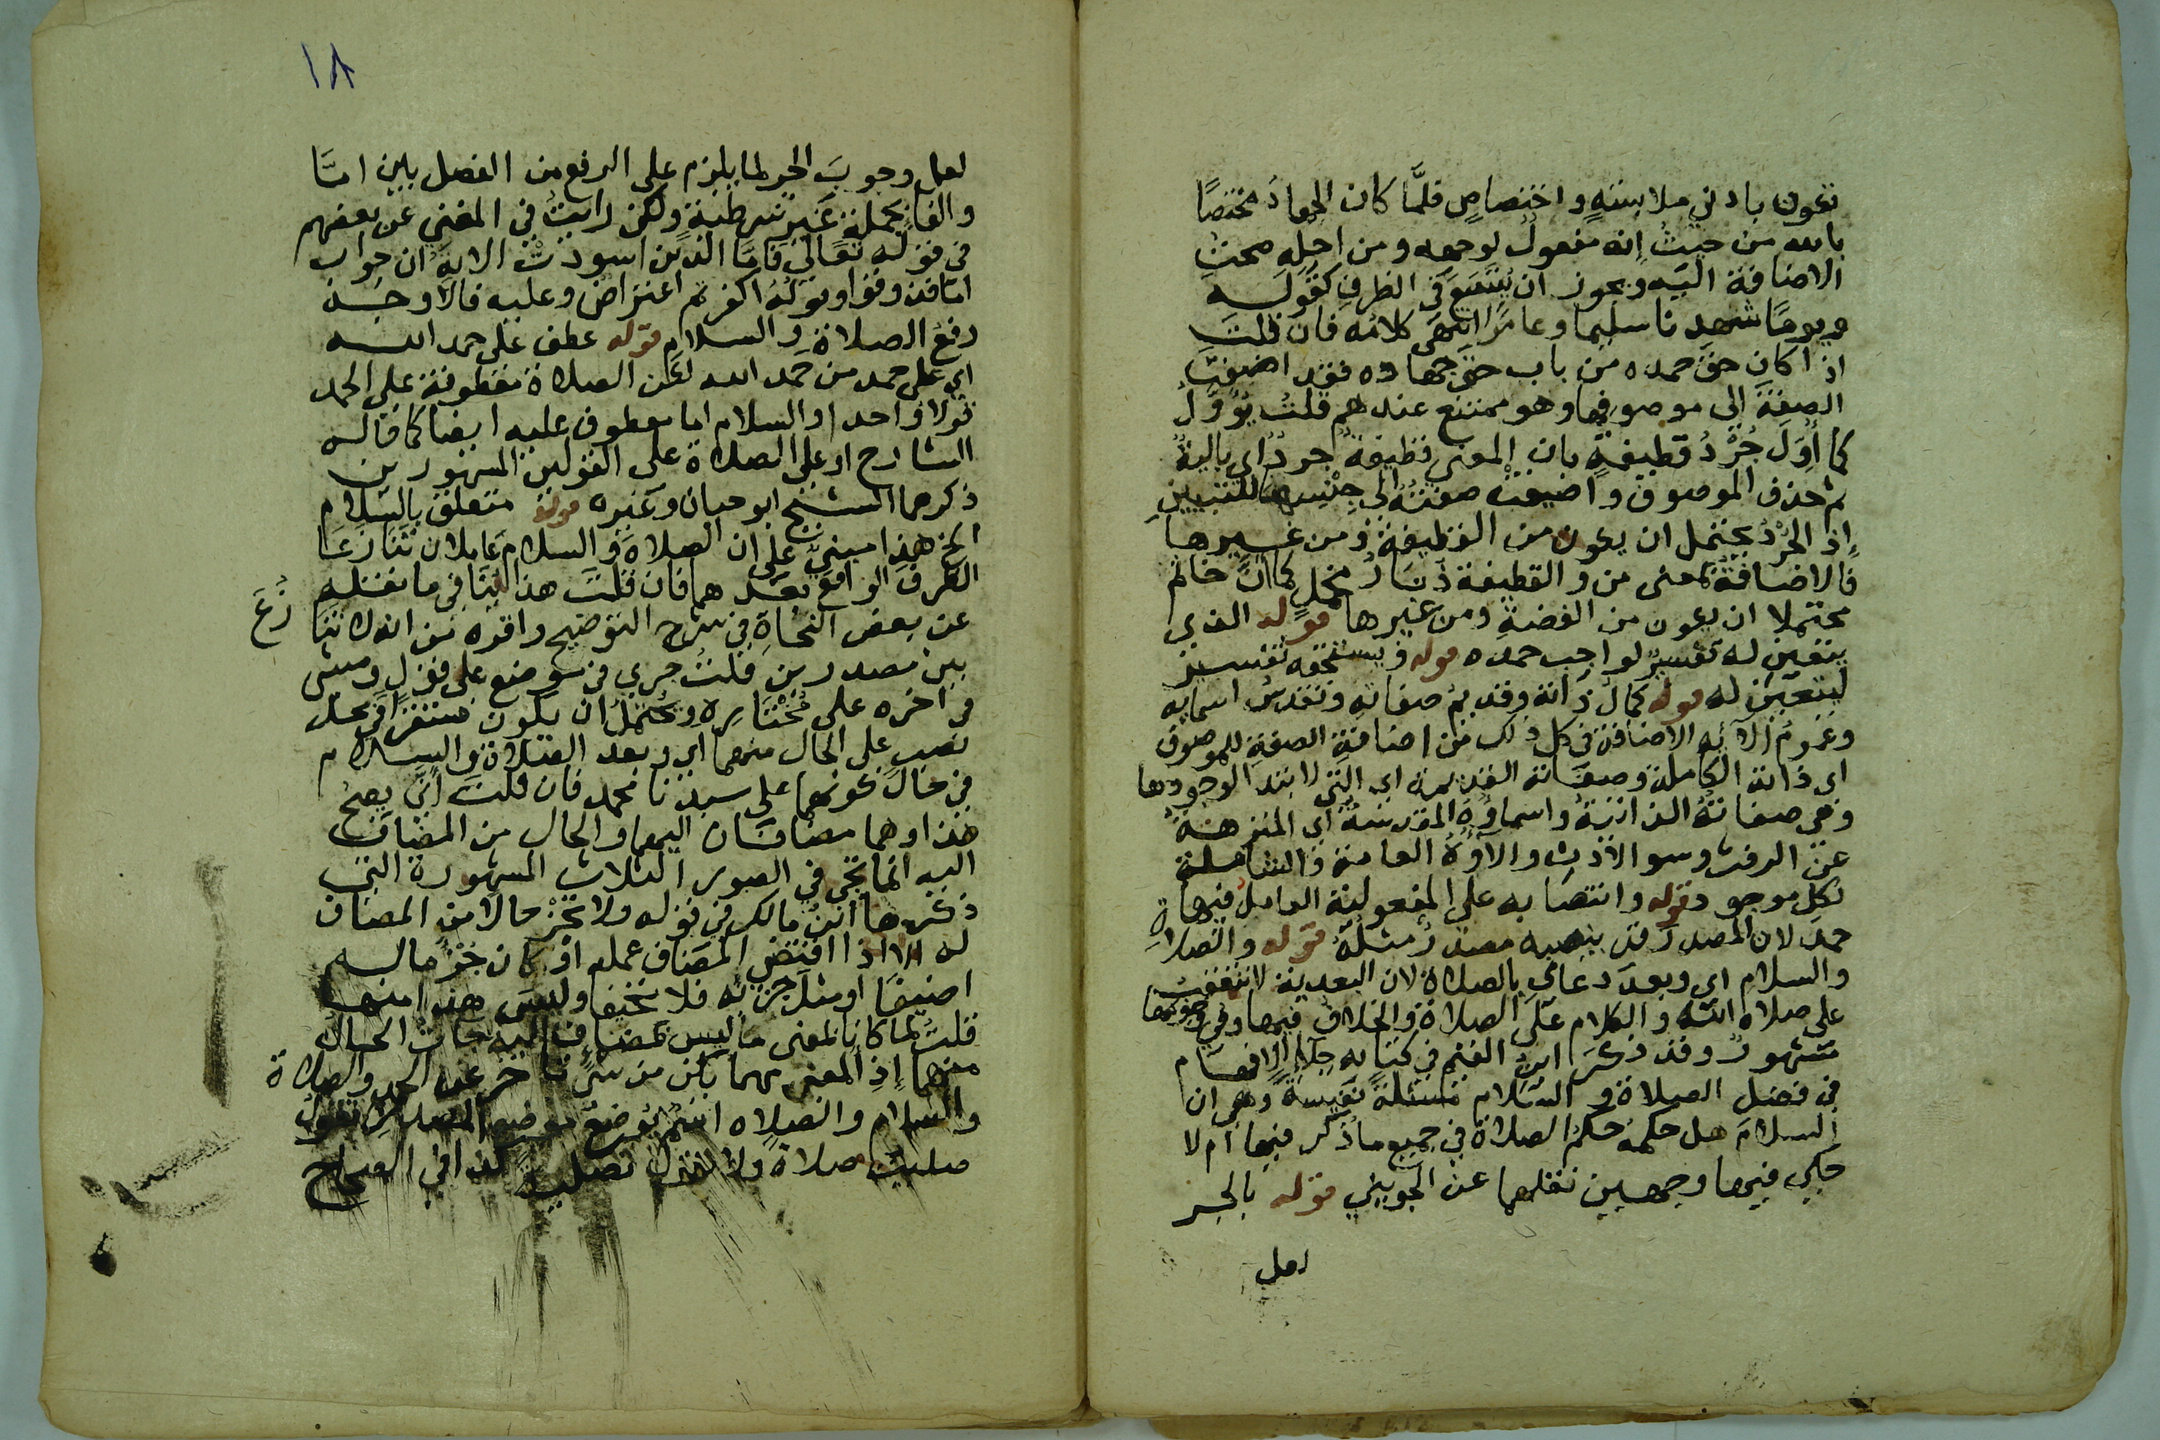 تكون بادني ملابسة واختصاص فلمَّا كان الجهادُ مختصًا
بالله من حيثُ إنه مفعولٌ لوجهه ومن اجله صحت
الاضافة اليه ويجوز ان يُتَّسَعَ في الظرفِ كقوله
ويومًا شهدنا سليما وعامرًا انتهى كلامُه فان قلتَ
اذا كان حق حمده من باب حق جهاده فقد اضيفت
الصفة إلى موصوفها وهو ممتنع عندهم قلتُ يُؤوَّلُ
كما أُوِّلَ جُرْدُ قطيفةٍ بان المعنى قطيفة جردٌ اي بالية
ثم حذف الموصوف واضيفت صفتُهُ الى جِنْسِها للتبيين
إذ الجُرْدُ يحتمل ان يكون من القطيفة ومن غيرها
فالاضافةُ بمعنى من والقطيفة دثارٌ مخملٍ كما انَّ خاتم
محتملا ان يكون من الفضة ومن غيرها قوله الذي
يتعين له تفسيرٌ لواجب حمده قوله ويستحقه تفسير
ليتعيَّن له قوله كمال ذاته وقديم صفاته وتقدس اسمايه
وعموم آلائه الاضافة في كل ذلك من اضافة الصفة للموصوف
اي ذاته الكاملة وصفاته القديمة اي التي لا ابتدا لوجودها
وهي صفاته الذاتيةُ واسماؤُه المقدسةُ اي المنزهةُ
عن الرفث وسو الأدب وآلاؤُهُ العامة والشاملة
لكل موجود قوله وانتصابه على المفعولية العامل فيها
حمدَ لان المصدرَ قد ينصبه مصدرٌ مثلُهُ قوله والصلاةِ
والسلام اي وبعدَ دعائي بالصلاة لان البعدية لا تتحقق
على صلاه الله والكلام على الصلاة والخلاف فيها وفي وجوبها
مشهورٌ وقد ذكرَ ابنُ القيم في كتابه جلا الافهام
في فضل الصلاة والسلام مسئلةً نفيسةً وهي ان
السلامَ هل حكمه حكمُ الصلاة في جميع ما ذكر فيها ام لا
حكي فيها وجهين نقلهما عن الجويني قوله بالجر
لعل
١٨
لعل وجوبَ الجر لما يلزم على الرفع من الفصل بين امَّا
والفا بجملةٍ غير شرطيةٍ ولكن رايتُ في المغني عن بعضهم
في قوله تعالى فامَّا الذين اسودتْ الايةَ ان جواب
امّا فذوقوا وقولُهُ اكفرتم اعتراضٌ وعليه فالاوجه
رفعُ الصلاة والسلام قوله عطف على حمد الله
اي على حمد من حَمد الله لكن الصلاة معطوفة على الحمد
قولا واحدا والسلام اما معطوف عليه ايضا كما قاله
الشارح او على الصلاة على القولين المشهورين
ذكرهما الشيخ ابو حيان وغيره قوله متعلق بالسلام
الخ هذا مبنيٌّ على ان الصلاة والسلام عاملان تنازعا
الظرفَ الواقعَ بعدهما فان قلتَ هذا ينافي ما نقله
عن بعض النحاةِ في شرح التوضيح واقره من انه لا تنا
زُعَ
بين مصدرين قلتُ جري في موضع على قول ومشى
في اخره على مُخْتَارِه ويحتملُ ان يكون مستقرًا في محل
نصب على الحال منهما اي وبعد الصلاة والسلام
في حال كونهما على سيدنا محمد فان قلتَ أنَّى يصحُ
هذا وهما مضافان اليهما والحال من المضاف
اليه انما تجي في الصور الثلاث المشهورة التي
ذكرها ابنُ مالك في قوله ولا تجز حالا من المضاف
له الا اذا اقتضي المضاف عمله او كان جزْءَ ماله
اضيفا او مثلَ جزئه فلا تحيفا وليس هذا منها
قلتُ لما كانا لمعنى ما ليس بمضاف اليه جات الحالُ
منهما إذِ المعنى مهما يكن من شئٍ تاخر عن الحمد والصلاة
والسلام والصلاه اسْمٌ يُوضعُ موضع المصدر تقول
صليتُ صلاةً ولا تقل تصليةً كذا في الصحاح